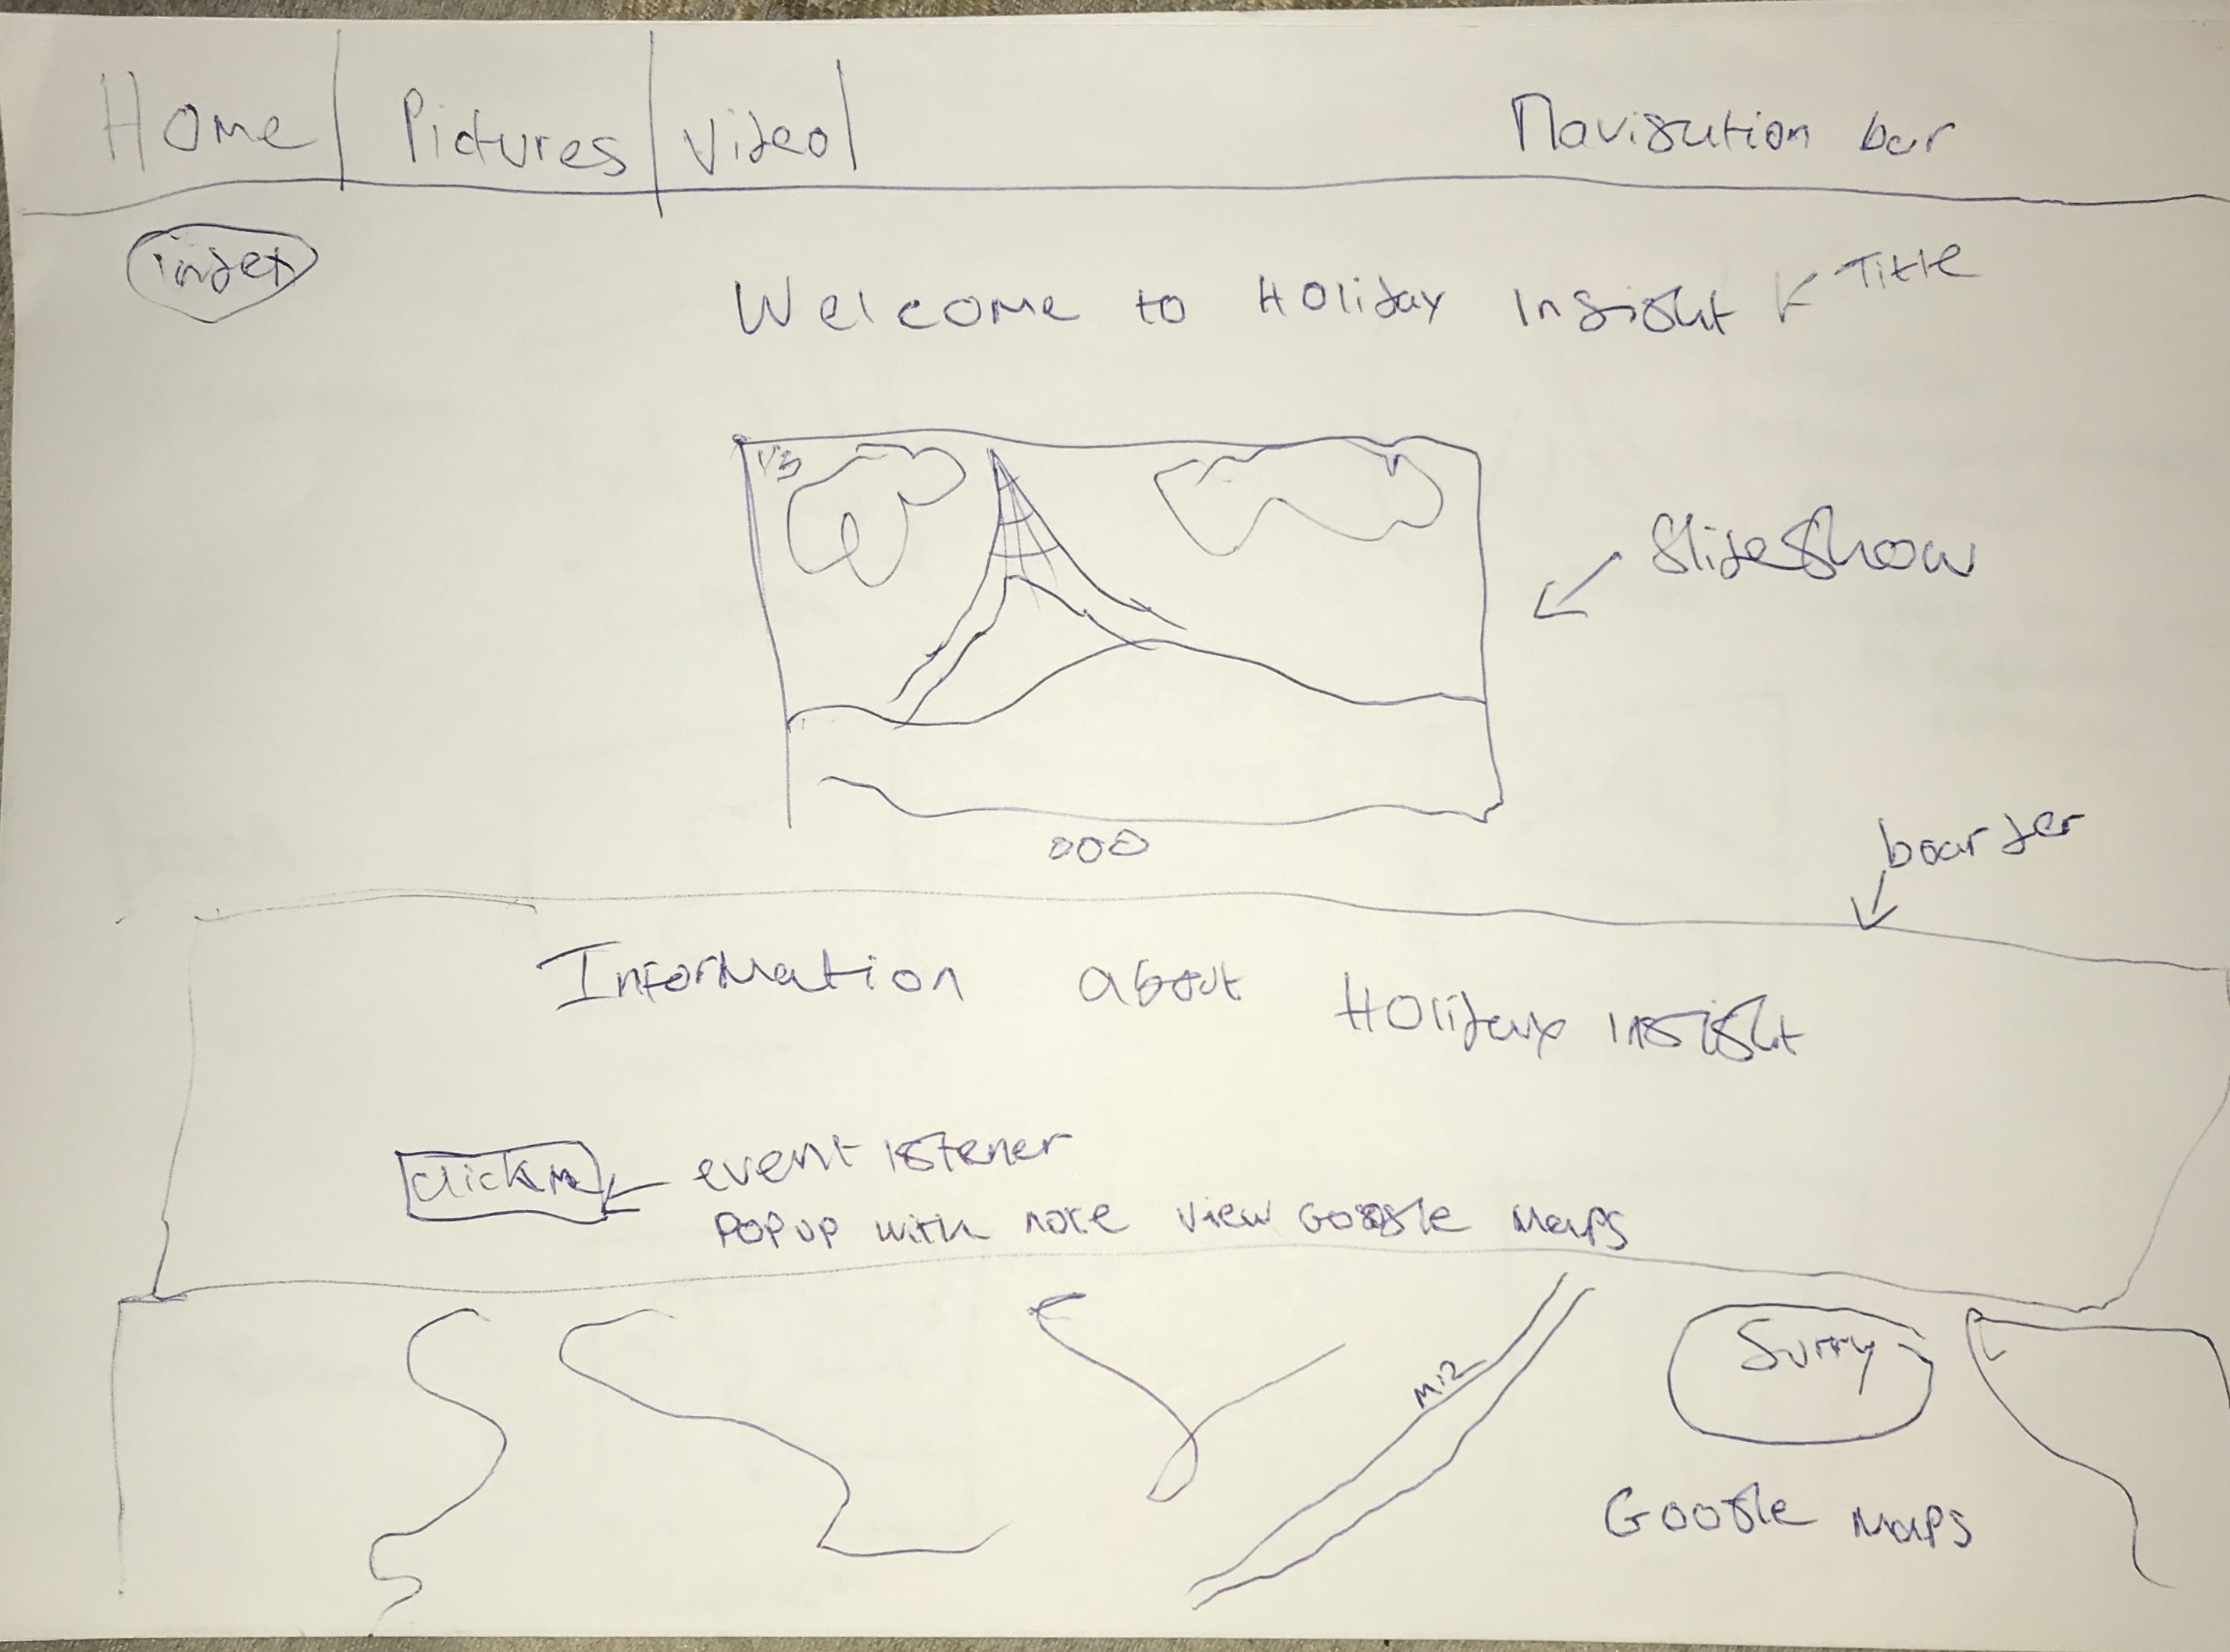 Home Pictures Video Navigation bar
index
Welcome to Holiday Insight Title
1/3
SlideShow
boarder
Information about Holiday insight
Click me event listener
Pop up with note view Google Maps
Surry
Google Maps